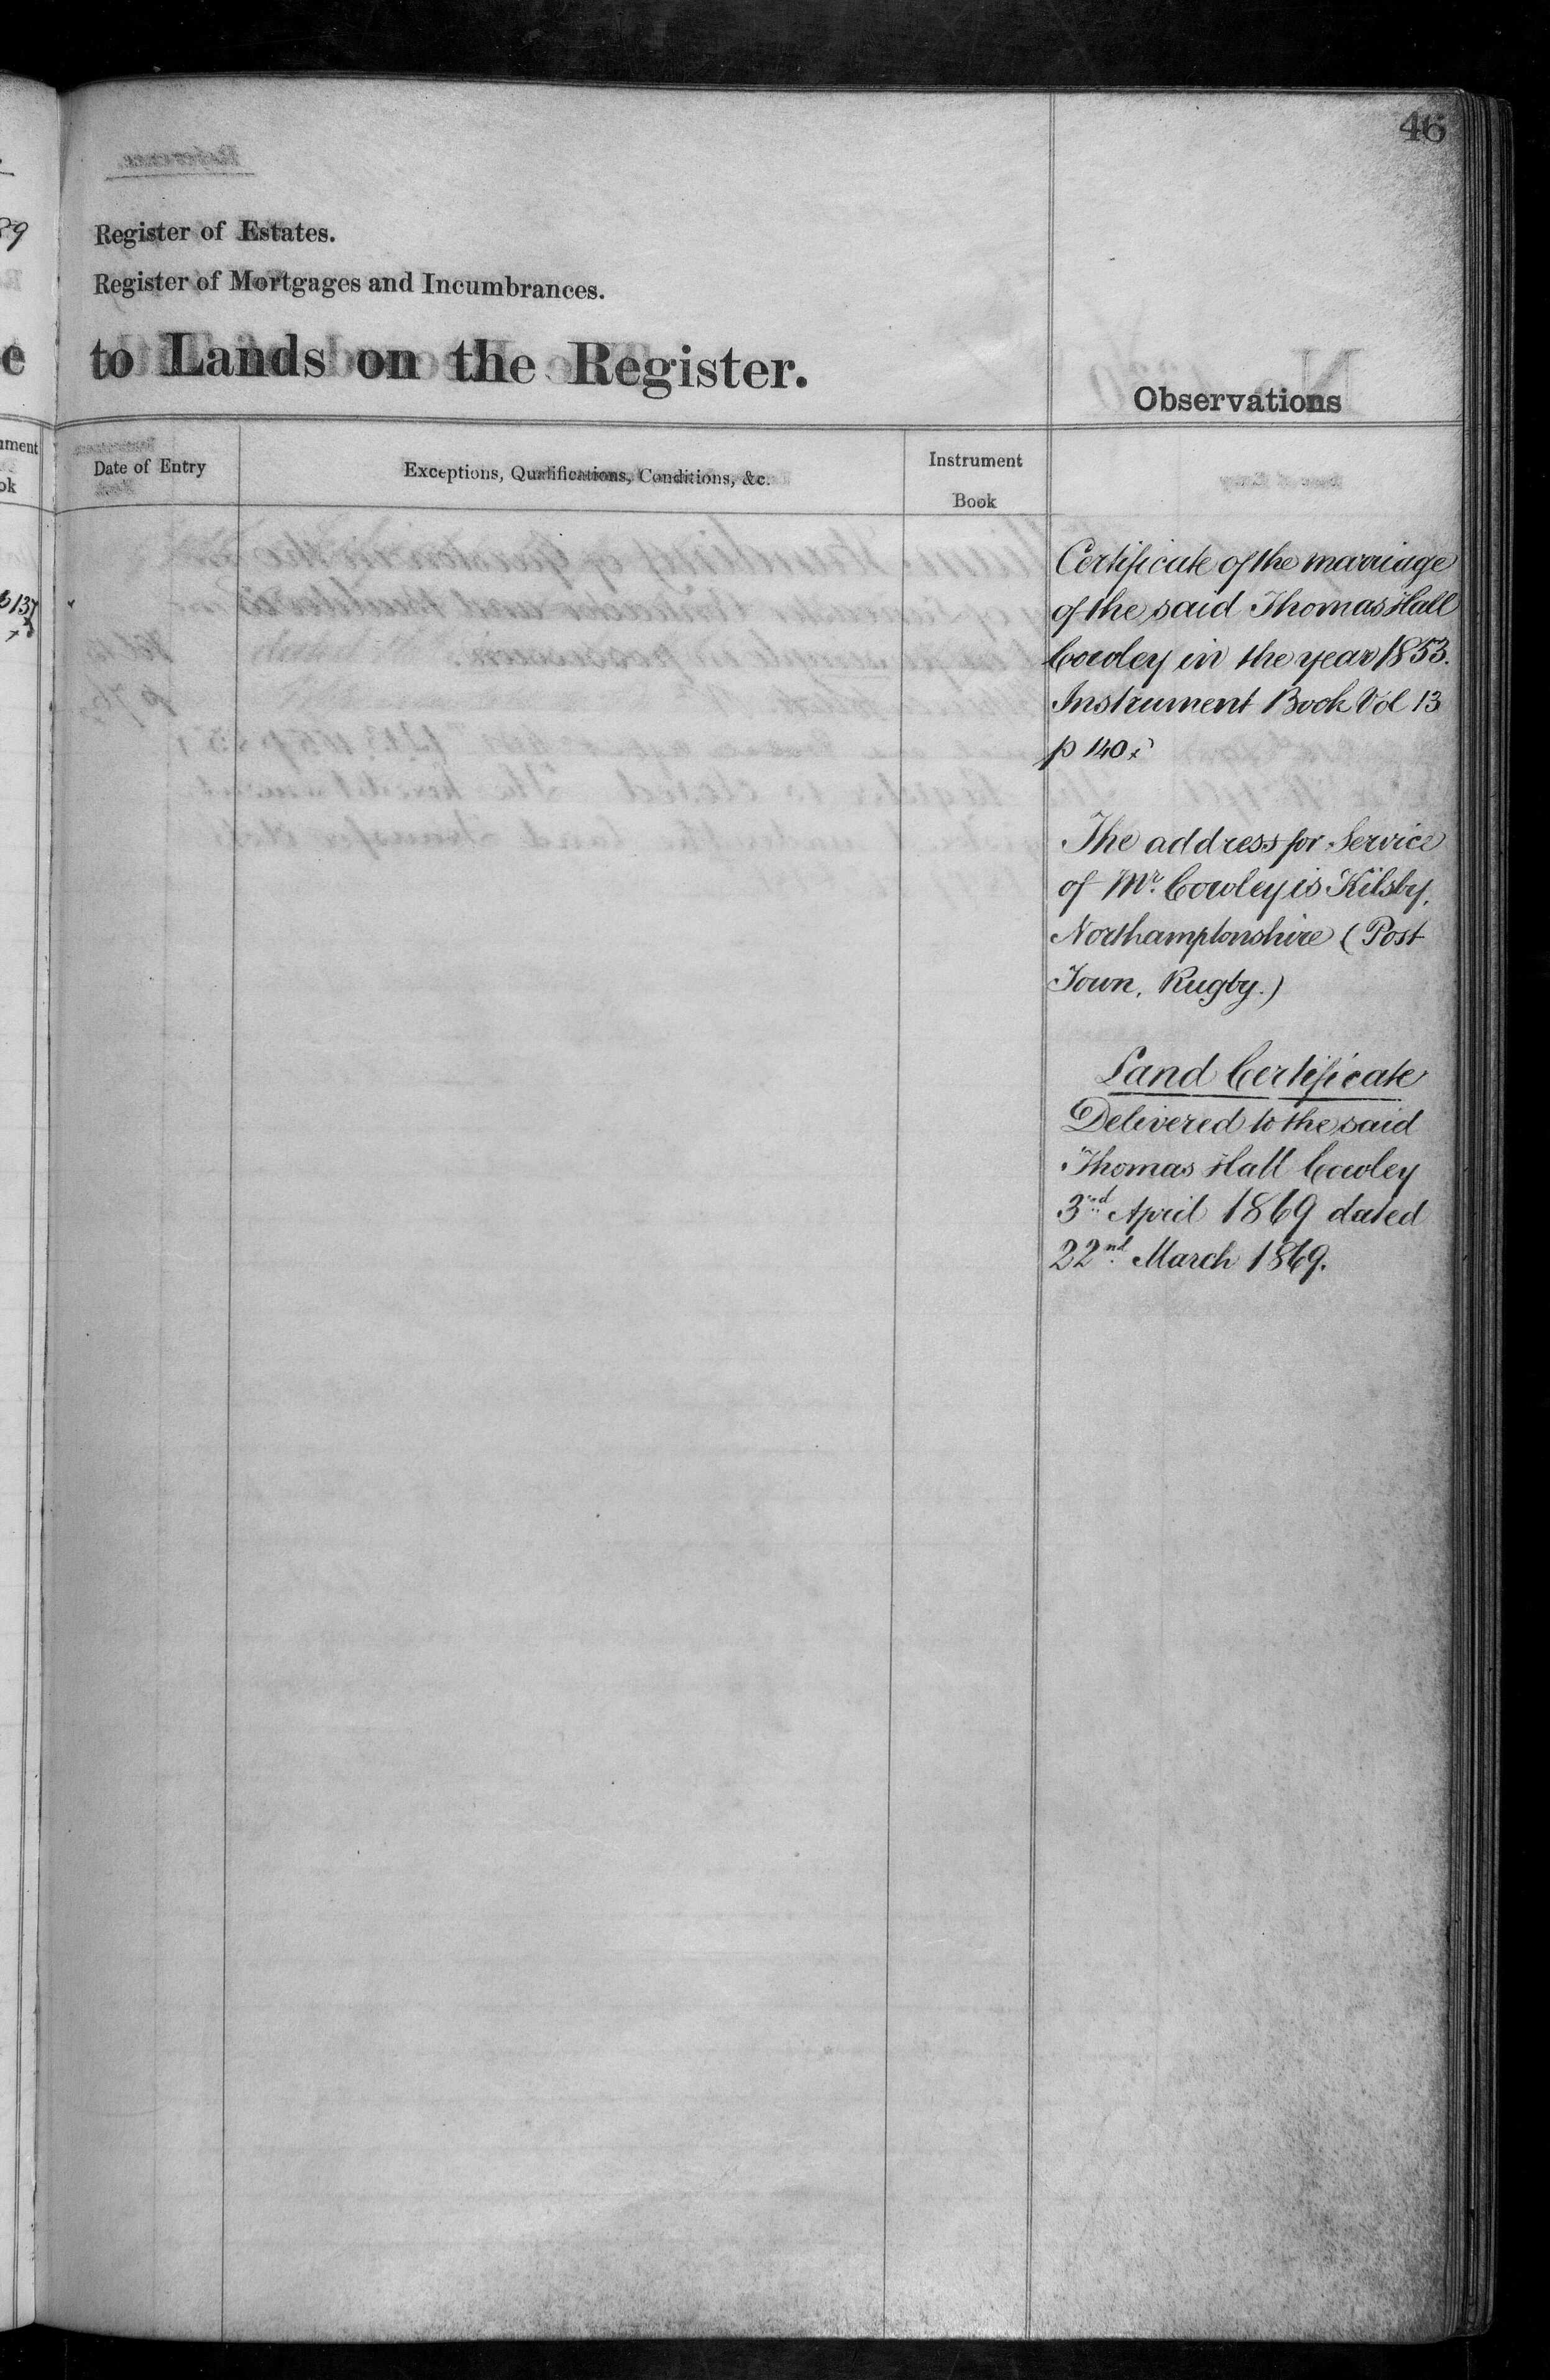 46
Register of Estates.
Register of Mortgages and Incumbrances.
to Lands on the Register.
Observations
Date of Entry
Exceptions, Qualifications, Conditions, &c.
Instrument
Book
Certificate of the marriage
of the said Thomas Hall
Cowley in the year 1853.
Instrument Book Vol 13
p 140
The address for Service
of Mr. Cowley is Kilsby,
Northamptonshire (Post
Town, Rugby.)
Land Certificate
Delivered to the said
Thomas Hall Cowley
3rd April 1869 dated
22nd March 1869.